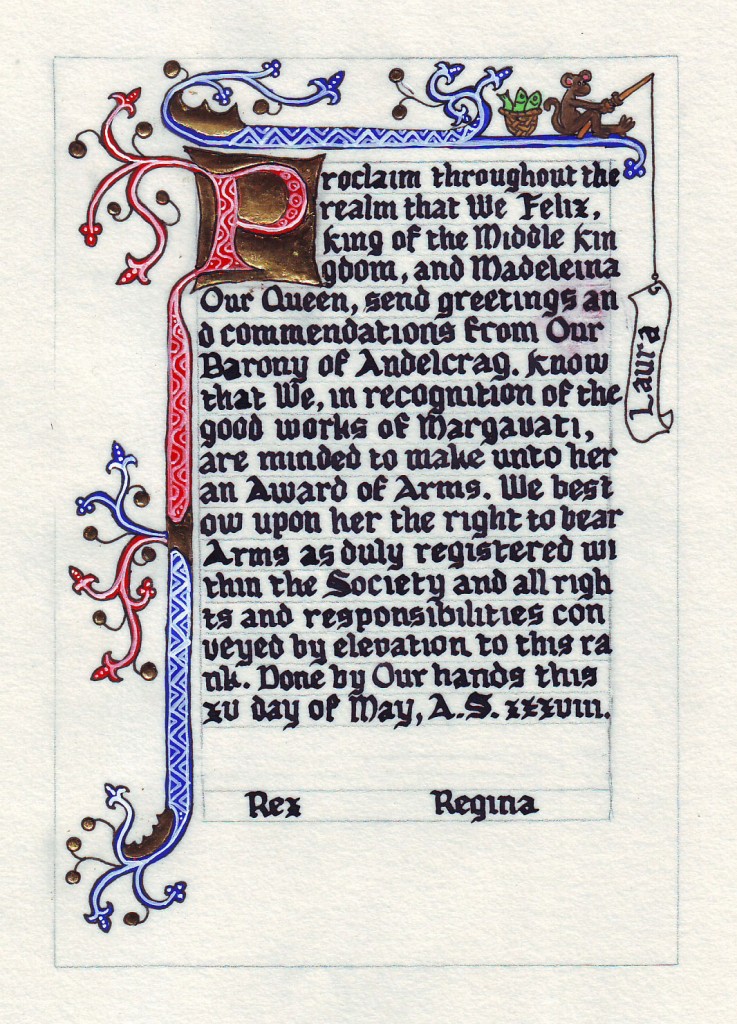 Proclaim throughout the
realm that We Felix,
King of the Middle Kin
gdom, and Madeleina
Our Queen, send greetings an
d commendations from Our
Barony of Andelcrag. Know
that We, in recognition of the
good works of Margavati,
are minded to make unto her
an Award of Arms. We best
ow upon her the right to bear
Arms as duly registered wi
thin the Society and all righ
ts and responsibilities con
veyed by elevation to this ra
nk. Done by Our hands this
xv day of May, A.S. xxxviii.
Rex Regina
Laura